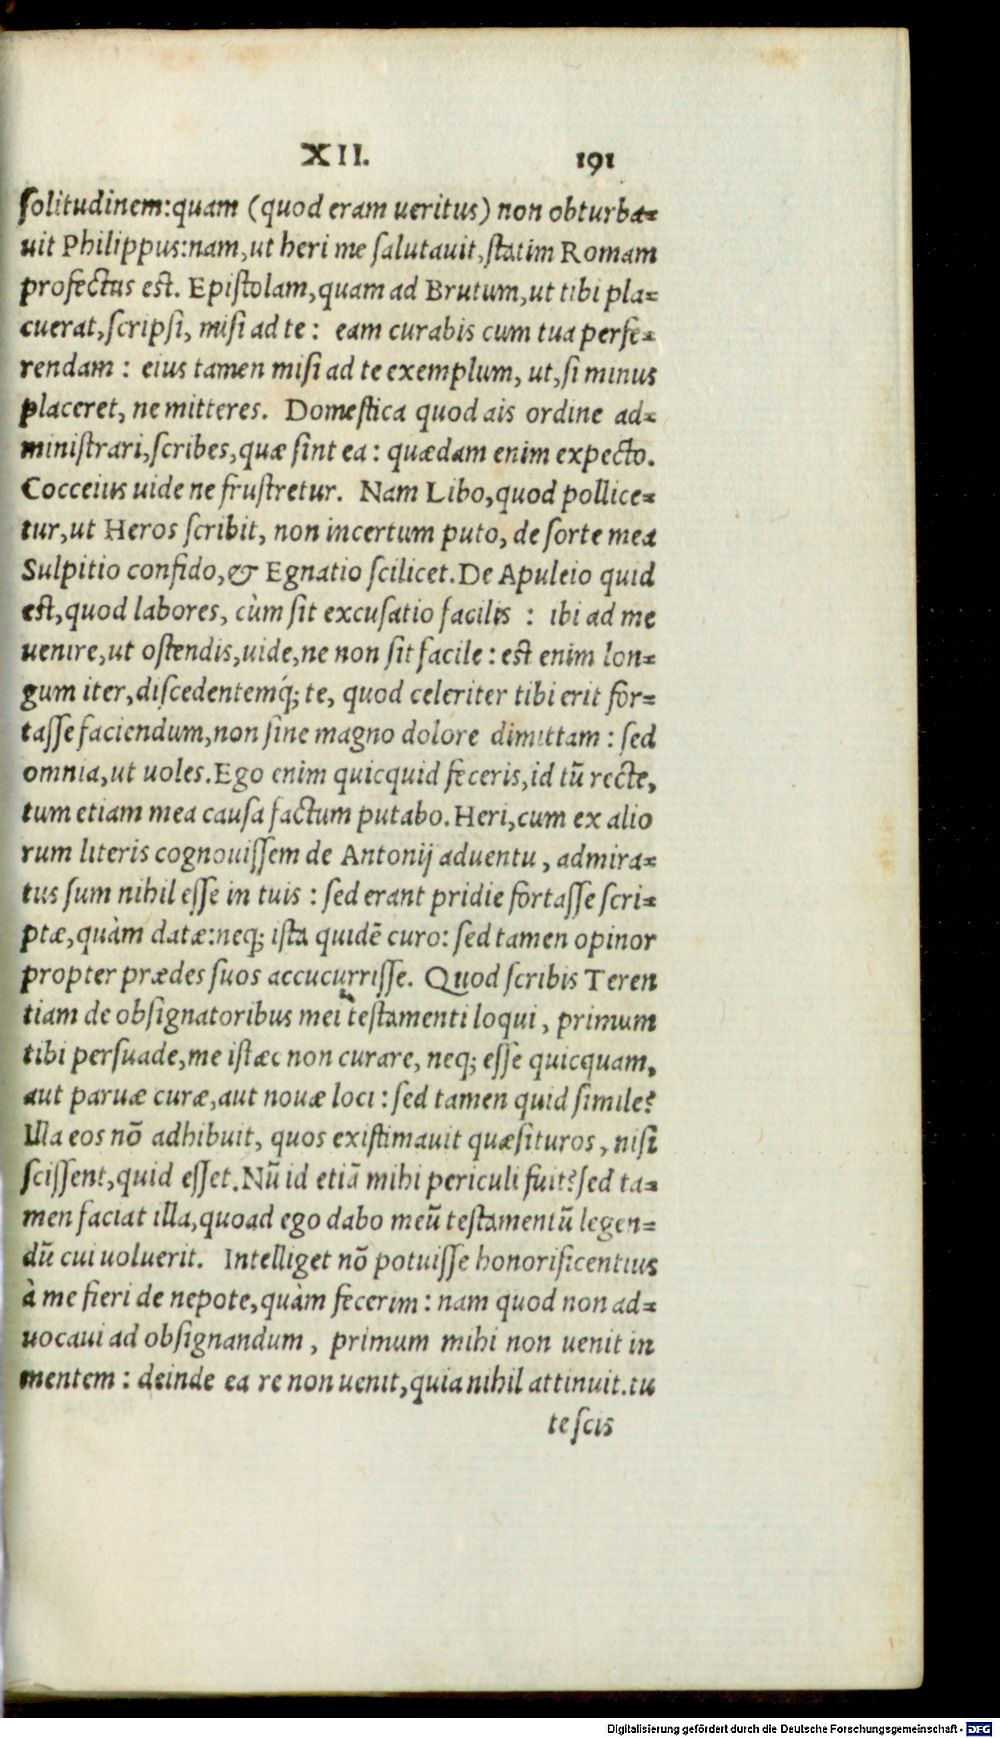 XII. 191
solitudinem:quam (quod eram ueritus) non obturba-
uit Philippus:nam,ut heri me salutauit,statim Romam
profectus est. Epistolam,quam ad Brutum,ut tibi pla-
cuerat,scripsi, misi ad te : eam curabis cum tua perfe-
rendam : eius tamen misi ad te exemplum, ut,si minus
placeret, ne mitteres. Domestica quod ais ordine ad-
ministrari,scribes,quæ sint ea : quædam enim expecto.
Cocceius uide ne frustretur. Nam Libo,quod pollice-
tur,ut Heros scribit, non incertum puto, de sorte mea
Sulpitio confido,& Egnatio scilicet.De Apuleio quid
est,quod labores, cùm sit excusatio facilis : ibi ad me
uenire,ut ostendis,uide,ne non sit facile : est enim lon-
gum iter,discedentemq́; te, quod celeriter tibi erit for-
tasse faciendum,non sine magno dolore dimittam : sed
omnia,ut uoles.Ego enim quicquid feceris,id tũ recte,
tum etiam mea causa factum putabo.Heri,cum ex alio
rum literis cognouissem de Antonij aduentu , admira-
tus sum nihil esse in tuis : sed erant pridie fortasse scri-
ptæ,quàm datæ:neq; ista quidẽ curo: sed tamen opinor
propter prædes suos accucurrisse. Quod scribis Teren
tiam de obsignatoribus mei testamenti loqui , primum
tibi persuade,me istæc non curare, neq; esse quicquam,
aut paruæ curæ,aut nouæ loci : sed tamen quid simile?
Illa eos nõ adhibuit, quos existimauit quæsituros , nisi
scissent,quid esset.Nũ id etiã mihi periculi fuit?sed ta-
men faciat illa,quoad ego dabo meũ testamentũ legen-
dũ cui uoluerit. Intelliget nõ potuisse honorificentius
à me fieri de nepote,quàm fecerim : nam quod non ad-
uocaui ad obsignandum , primum mihi non uenit in
mentem : deinde ea re non uenit,quia nihil attinuit.tu
te scis
Digitalisierung gefördert durch die Deutsche Forschungsgemeinschaft - DFG